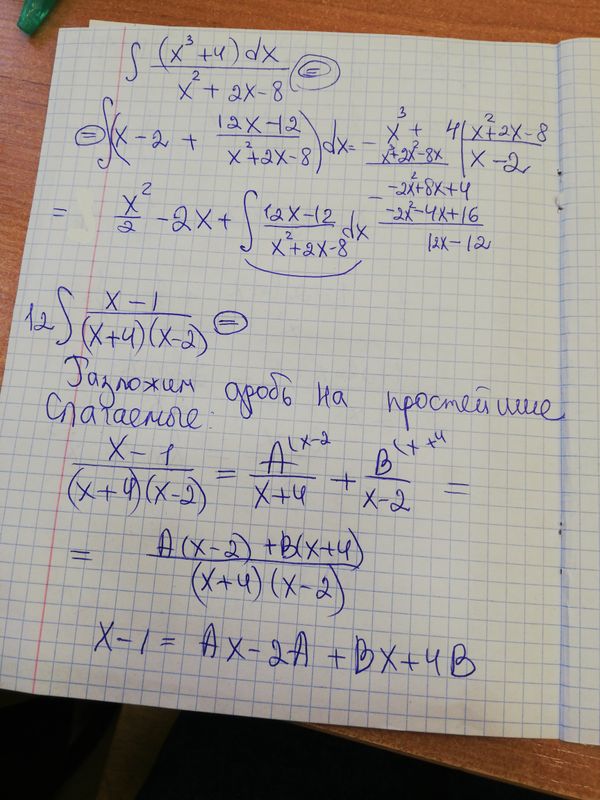 ∫ (x³+4) dx / x² + 2x - 8 =
= ∫(x - 2 + 12x-12 / x²+2x-8) dx =
= x²/2 - 2x + ∫ 12x-12 / x²+2x-8 dx
- x³ + 4 | x²+2x-8
x³+2x²-8x | x - 2
- -2x²+8x+4
-2x²-4x+16
12x-12
12 ∫ x-1 / (x+4)(x-2) =
Разложим дробь на простейшие
слагаемые:
x-1 / (x+4)(x-2) = A(x-2 / x+4 + B(x+4 / x-2 =
= A(x-2)+B(x+4) / (x+4)(x-2)
x-1 = Ax-2A+Bx+4B